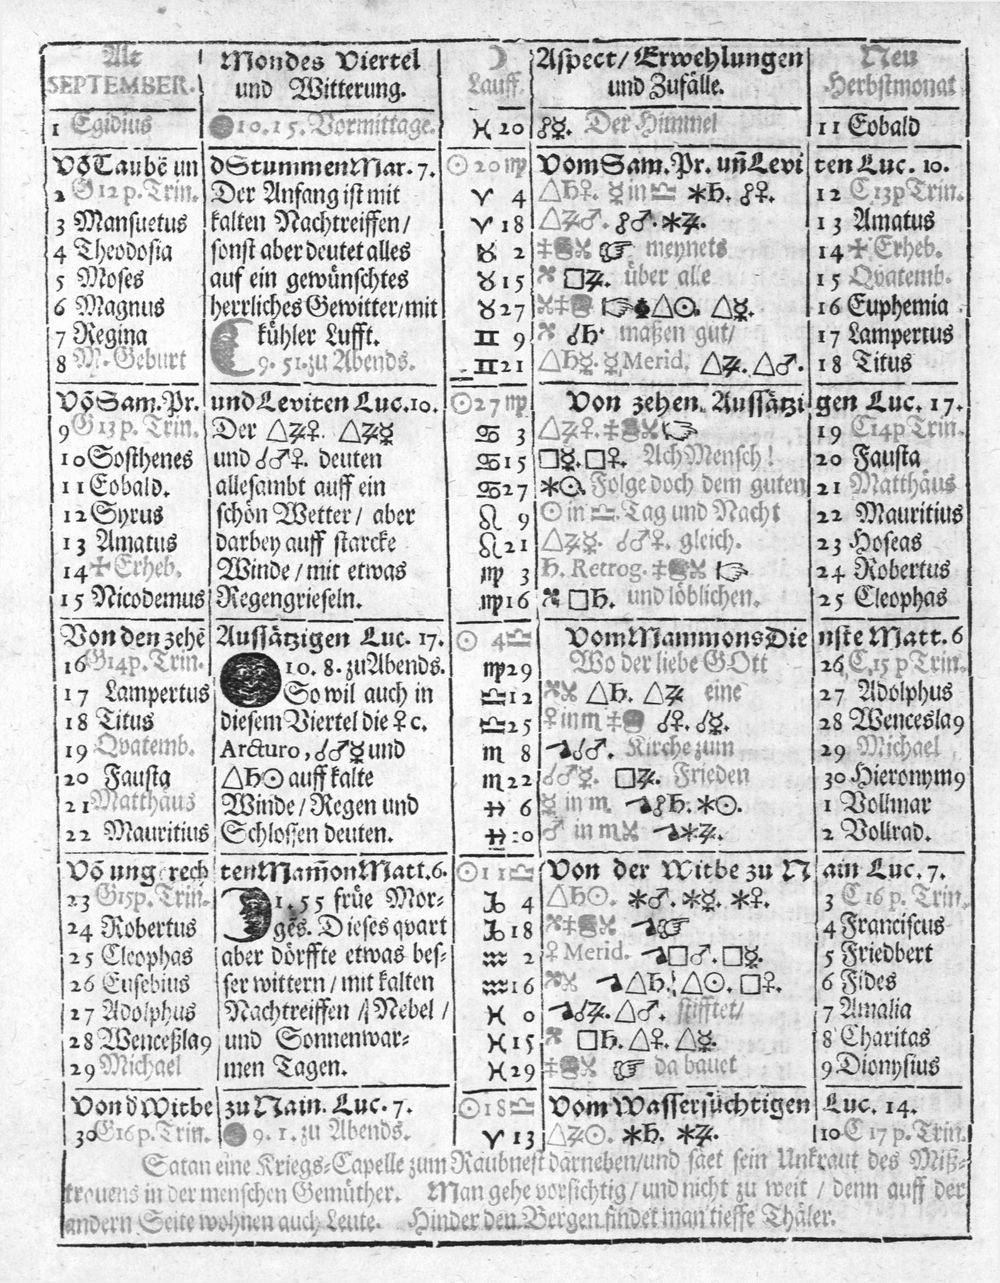 Alt Mondes Viertel ☽ Aspect / Erwehlungen Neu
SEPTEMBER. und Witterung. Lauff. und Zufälle. Herbstmonat
1 Egidius 10. 15. Vormittage. ♓ 20 ☍☿. Der Himmel 11 Eobald
Võ Taubẽ un d Stummen Mar. 7. ☉ 20 ♍ Vom Sam. Pr. uñ Levi ten Luc. 10.
2 G 12 p. Trin. Der Anfang ist mit ♈ 4 △♄♀. ☿ in ♎ ✱♄. ☍♀. 12 C 13 p Trin.
3 Mansuetus kalten Nachtreiffen / ♈ 18 △♃♂. ☍♂. ✱♃. 13 Amatus
4 Theodosia sonst aber deutet alles ♉ 2 meynets 14 ✠ Erheb.
5 Moses auf ein gewünschtes ♉ 15 □♃. über alle 15 Qvatemb.
6 Magnus herrliches Gewitter / mit ♉ 27 △☉. △☿. 16 Euphemia
7 Regina kühler Lufft. ♊ 9 maßen gut / 17 Lampertus
8 M. Geburt 9. 51. zu Abends. ♊ 21 △♄☿. ☿ Merid. △♃. △♂. 18 Titus
Võ Sam. Pr. und Leviten Luc. 10. ☉ 27 ♍ Von zehen Aussätzi gen Luc. 17.
9 G 13 p. Trin. Der △♃♀. △♃☿ ♋ 3 △♃♀. ☞ 19 C 14 p Trin.
10 Sosthenes und ☌♂♀. deuten ♋ 15 □☿. □♀. Ach Mensch ! 20 Fausta
11 Eobald. allesambt auff ein ♋ 27 ✱☉. Folge doch dem guten 21 Matthäus
12 Syrus schön Wetter / aber ♌ 9 ☉ in ♎. Tag und Nacht 22 Mauritius
13 Amatus darbey auff starcke ♌ 21 △♃☿. ☌♂♀. gleich. 23 Hoseas
14 ✠ Erheb. Winde / mit etwas ♍ 3 ♄. Retrog. ☞ 24 Robertus
15 Nicodemus Regengrieseln. ♍ 16 □♄. und löblichen. 25 Cleophas
Von den zehẽ Aussätzigen Luc. 17. ☉ 4 ♎ Vom Mammons Die nste Matt. 6
16 G 14 p. Trin. 10. 8. zu Abends. ♍ 29 Wo der liebe GOtt 26 C 15 p Trin.
17 Lampertus So wil auch in ♎ 12 △♄. △♃ eine 27 Adolphus
18 Titus diesem Viertel die ♀ c. ♎ 25 ♀ in ♏ ☌♀. ☌☿. 28 Wenceslaꝰ
19 Qvatemb. Arcturo, ☌♂☿ und ♏ 8 ☌♂. Kirche zum 29 Michael
20 Fausta △♄☉ auff kalte ♏ 22 ☌♂☿. □♃. Frieden 30 Hieronymꝰ
21 Matthäus Winde / Regen und ♐ 6 ☿ in ♏. ☍♄. ✱☉. 1 Vollmar
22 Mauritius Schlossen deuten. ♐ 20 ♂ in ♏ ✱♃. 2 Vollrad.
Võ ungerech ten Mam̃on Matt. 6. ☉ 11 ♎ Von der Witbe zu N ain Luc. 7.
23 G 15 p. Trin. 1. 55 früe Mor- ♑ 4 △♄☉. ✱♂. ✱☿. ✱♀. 3 C 16 p. Trin.
24 Robertus gẽs. Dieses qvart ♑ 18 ☞ 4 Franciscus
25 Cleophas aber dörffte etwas bes- ♒ 2 ♀ Merid. □♂. □☿. 5 Friedbert
26 Eusebius ser wittern / mit kalten ♒ 16 △♄. △☉. □♀. 6 Fides
27 Adolphus Nachtreiffen / Nebel / ♓ 0 ☌♃. △♂. stifftet / 7 Amalia
28 Wenceßlaꝰ und Sonnenwar- ♓ 15 □♄. △♀. △☿ 8 Charitas
29 Michael men Tagen. ♓ 29 ☞ da bauet 9 Dionysius
Von d Witbe zu Nain. Luc. 7. ☉ 18 ♎ Vom Wassersüchtigen Luc. 14.
30 G 16 p. Trin. 9. 1. zu Abends. ♈ 13 △♃☉. ✱♄. ✱♃. 10 C 17 p. Trin.
Satan eine Kriegs-Capelle zum Raubnest darneben / und säet sein Unkraut des Miß-
trauens in der menschen Gemüther. Man gehe vorsichtig / und nicht zu weit / denn auff der
andern Seite wohnen auch Leute. Hinder den Bergen findet man tieffe Thäler.